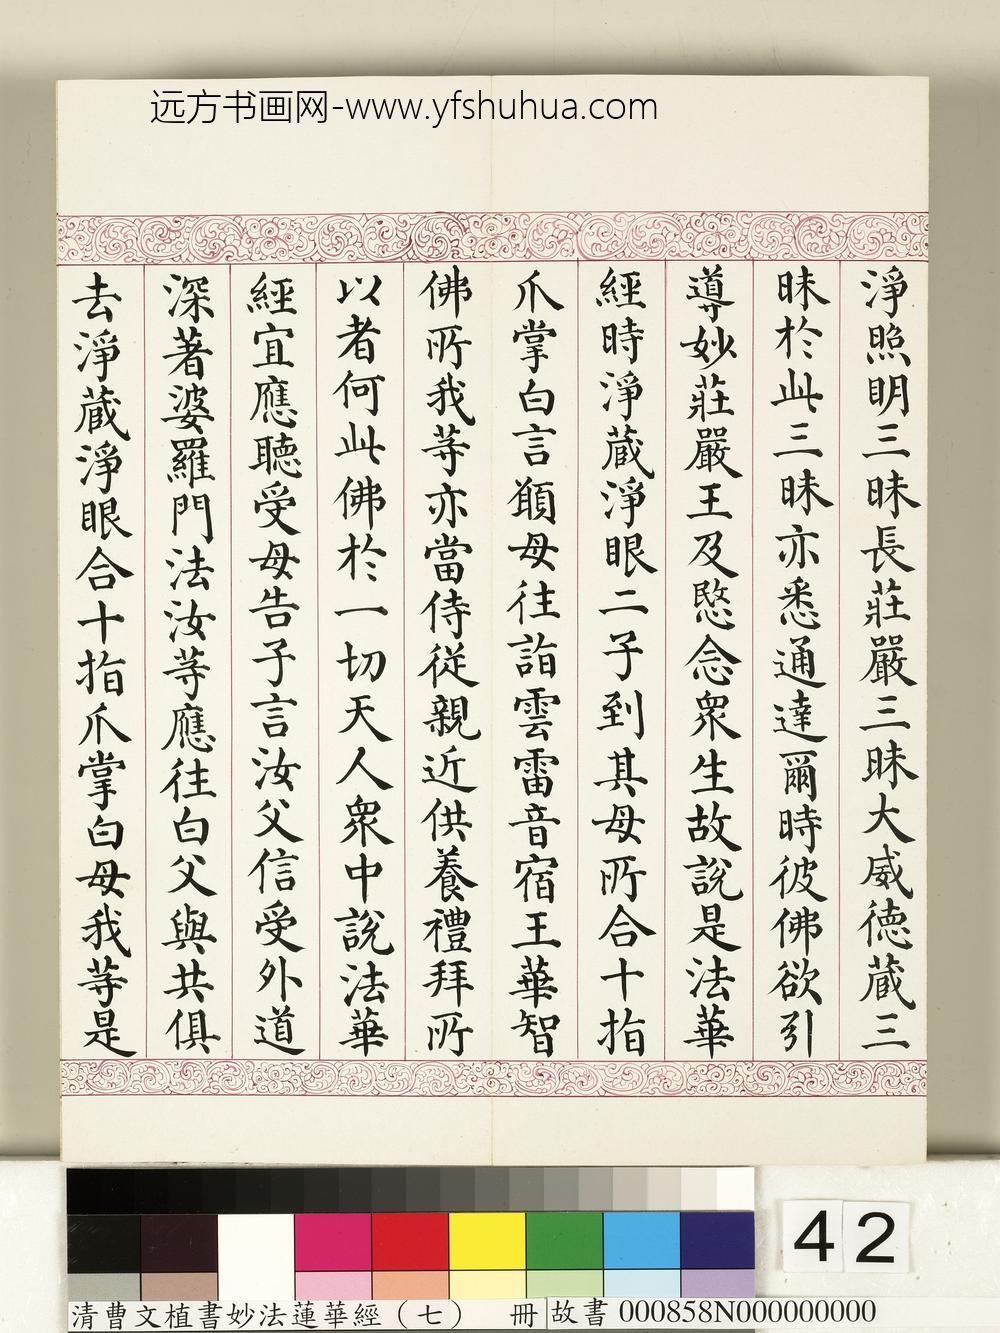 远方书画网-www.yfshuhua.com
淨照明三昧長莊嚴三昧大威德藏三
昧於此三昧亦悉通達爾時彼佛欲引
導妙莊嚴王及愍念衆生故說是法華
經時淨藏淨眼二子到其母所合十指
爪掌白言願母往詣雲雷音宿王華智
佛所我等亦當侍從親近供養禮拜所
以者何此佛於一切天人衆中說法華
經宜應聽受母告子言汝父信受外道
深著婆羅門法汝等應往白父與共俱
去淨藏淨眼合十指爪掌白母我等是
42
清曹文植書妙法蓮華經（七） 冊 故書 000858N000000000